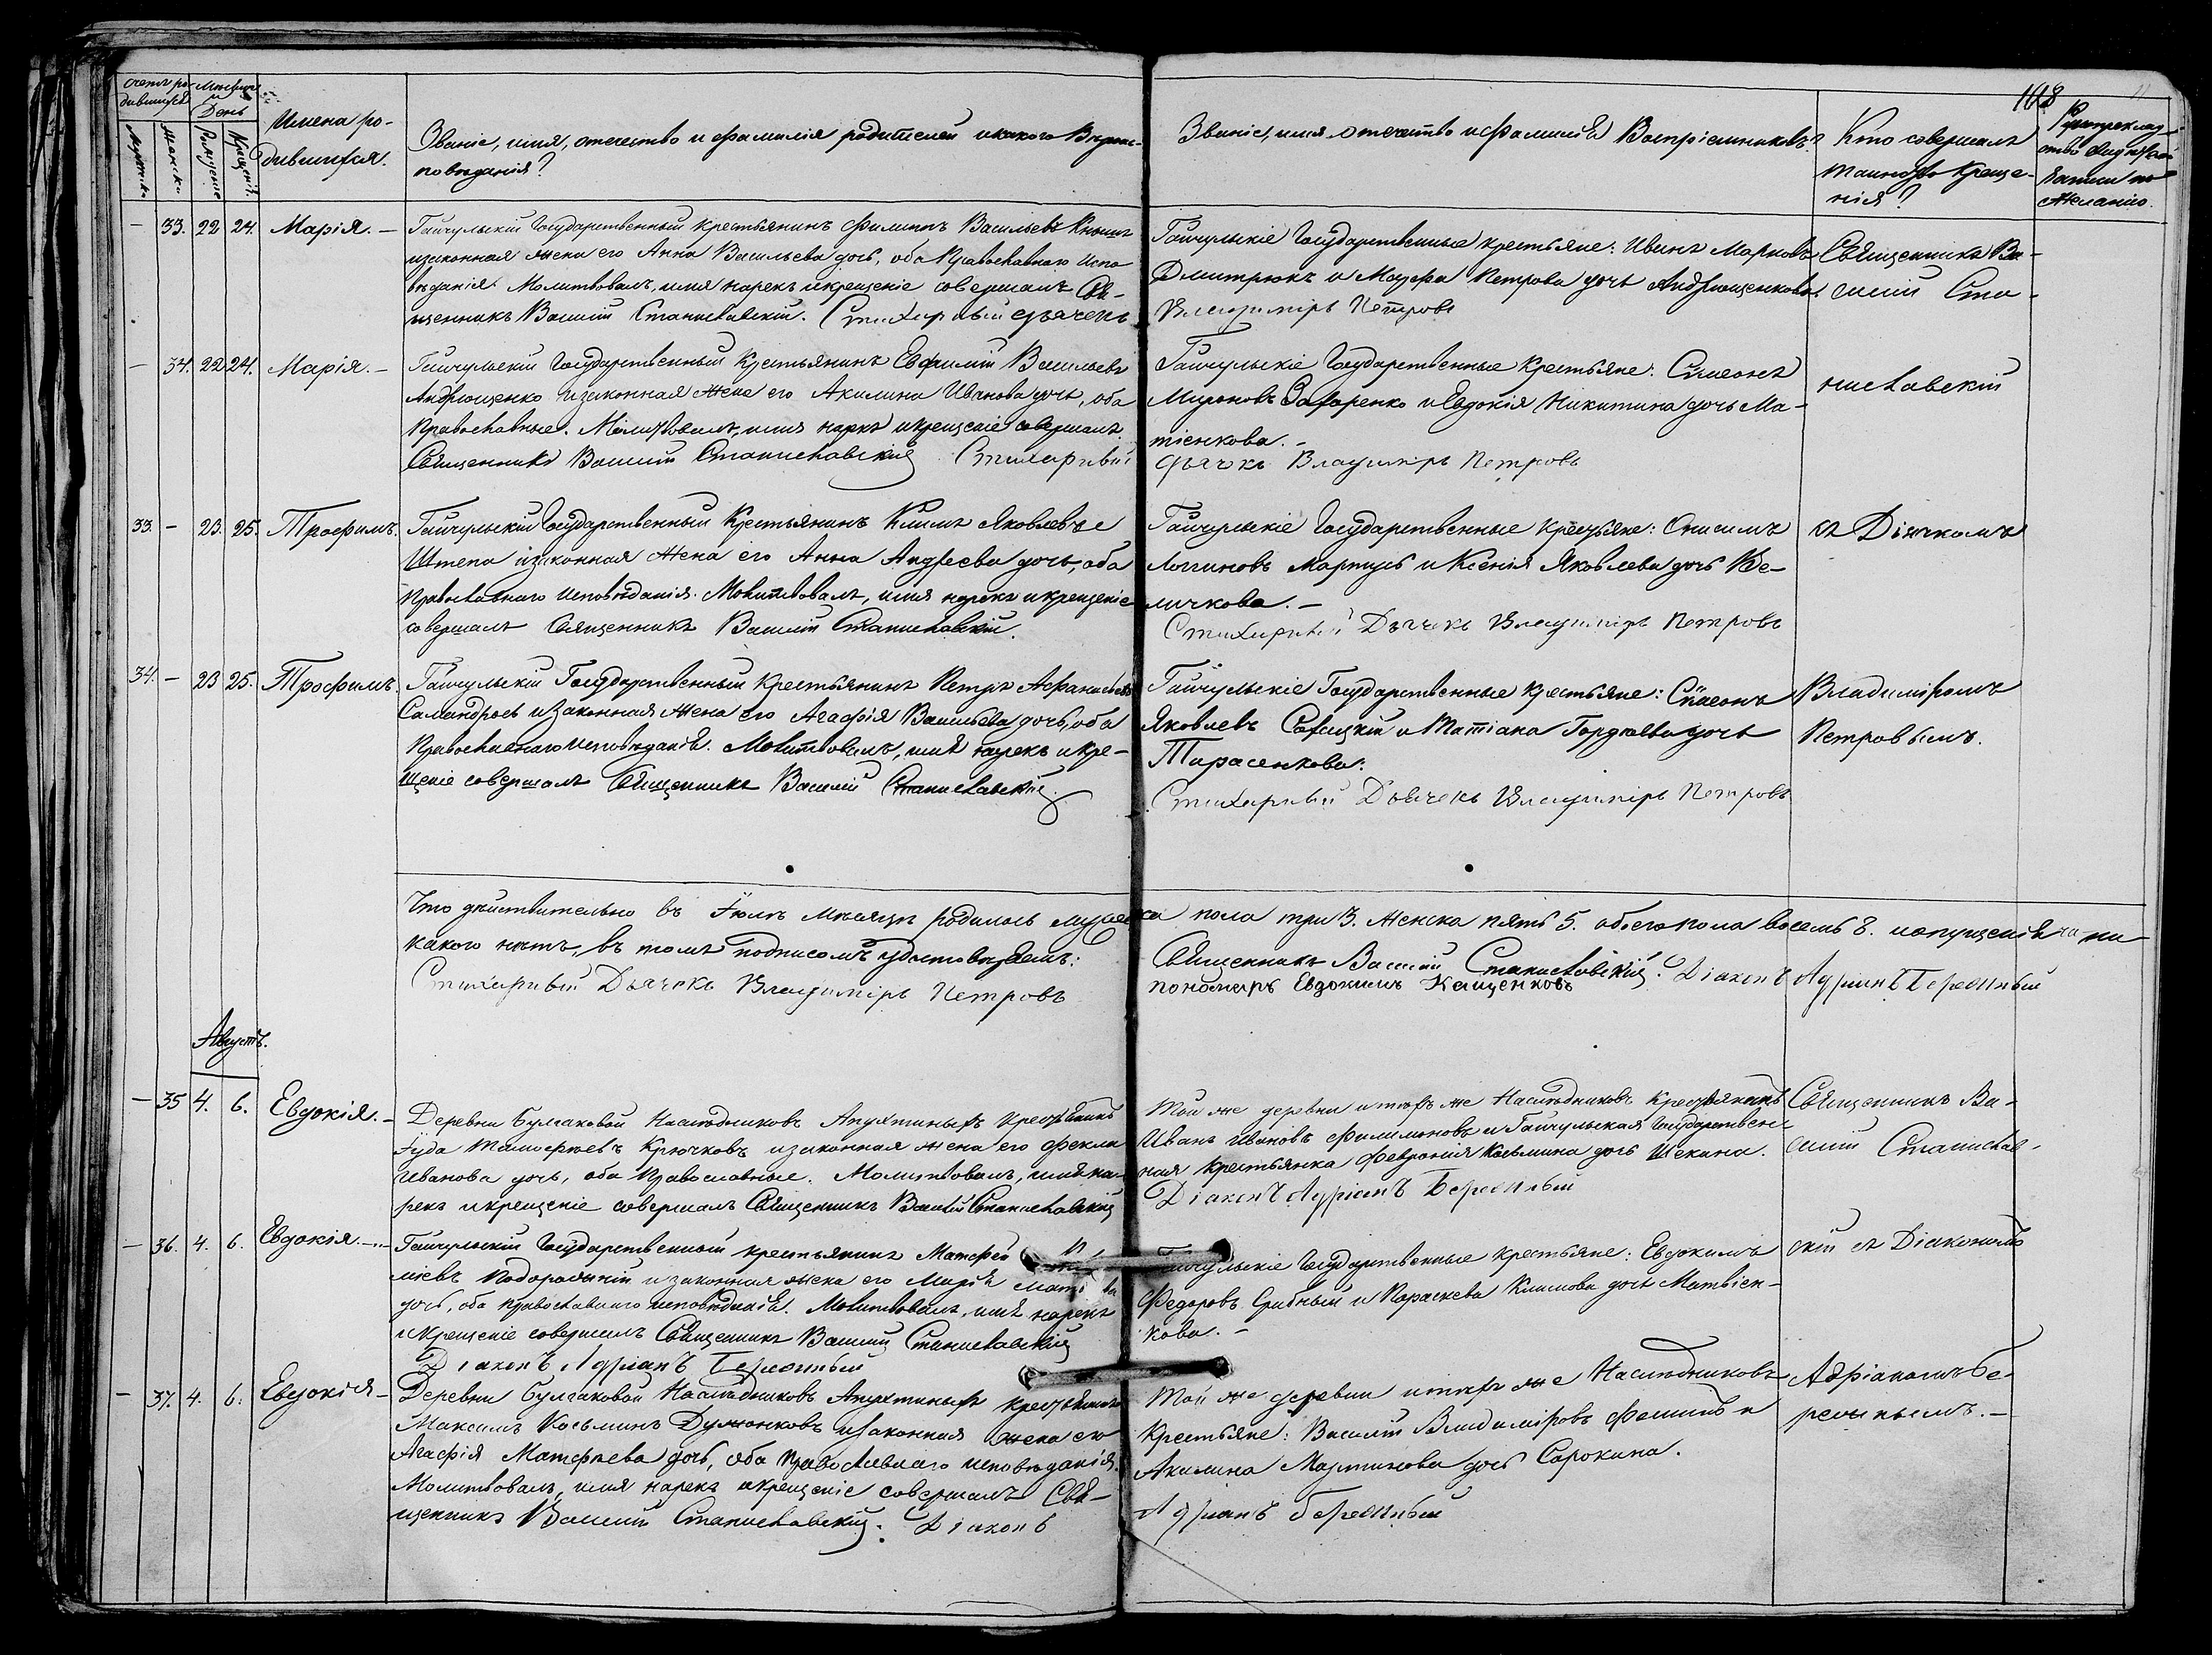 118
Счетъ ро- Мѣсяцъ
дившихся и
День
Мужеска
Женска
Рожденіе
Крещеніе
Имена ро-
дившихся.
Званіе, имя, отечество и фамилія родителей и какого Вѣроис-
повѣданія?
Званіе, имя отечество и фамилія Воспріемниковъ?
Кто совершалъ
таинство Креще-
нія?
Рукоприклад-
ство
записи по
желанію.
— 33. 22 24. Марія. —
Гайчульскій Государственный крестьянинъ Филиппъ Васильевъ
и законная жена его Анна Васильева дочь, оба Православнаго Испо
вѣданія. Молитвовалъ, имя нарекъ и крещеніе совершалъ Свя-
щенникъ Василій Станиславскій. Стихарный дьячекъ
Гайчульскіе Государственные крестьяне: Иванъ Марковъ
Дмитрюкъ и Марфа Петрова дочь Андрющенкова.
Владиміръ Петровъ
Священникъ Ва-
силій Ста-
— 34. 22 24. Марія. —
Гайчульскій Государственный Крестьянинъ Евфимій Васильевъ
Андрющенко и законная жена его Акилина Иванова дочь, оба
Православные. Молитвовалъ, имя нарекъ и крещеніе совершалъ
Священникъ Василій Станиславскій Стихарный
Гайчульскіе Государственные Крестьяне: Симеонъ
Мироновъ Захаренко и Евдокія Никитина дочь Ма-
тіенкова. —
дьячекъ Владиміръ Петровъ
ниславскій
33. — 23. 25. Трофимъ.
Гайчульскій Государственный Крестьянинъ Климъ Яковлевъ
Штепа и законная жена его Анна Андреева дочь, оба
Православнаго Исповѣданія. Молитвовалъ, имя нарекъ и крещеніе
совершалъ Священникъ Василій Станиславскій.
Гайчульскіе Государственные крестьяне: Онисимъ
Логиновъ и Ксенія Яковлева дочь Ве-
личкова. —
Стихарный Дьячекъ Владиміръ Петровъ
съ Дьячкомъ
34. — 23 25. Трофимъ.
Гайчульскій Государственный Крестьянинъ Петръ Афанасьевъ
и законная жена его Агафія Васильева дочь, оба
Православнаго исповѣданія. Молитвовалъ, имя нарекъ и кре-
щеніе совершалъ Священникъ Василій Станиславскій.
Гайчульскіе Государственные крестьяне: Симеонъ
Яковлевъ и Татіана Гордѣева дочь
Тарасенкова.
Стихарный Дьячекъ Владиміръ Петровъ
Владиміромъ
Петровымъ.
Что дѣйствительно въ Іюлѣ Мѣсяцѣ родилось мужеска пола три 3. женска пять 5. обоего пола восемь 8. и опущенія ни
какого нѣтъ, въ томъ подписомъ удостовѣряемъ:
Священникъ Василій Станиславскій. Діаконъ Адріанъ
Стихарный Дьячекъ Владиміръ Петровъ
пономарь Евдокимъ Кащенковъ
Августъ.
— 35 4. 6. Евдокія. —
Деревни Булгаковой Наслѣдниковъ Апухтиныхъ крестьянинъ
Іуда Тимофеевъ Крючковъ и законная жена его Фекла
Иванова дочь, оба Православные. Молитвовалъ, имя на-
рекъ и крещеніе совершалъ Священникъ Василій Станиславскій
Той же деревни и тѣхъ же Наслѣдниковъ Крестьянинъ
Иванъ Ивановъ Филимоновъ и Гайчульская Государствен-
ная крестьянка Февронія Косьмина дочь Щекина.
Діаконъ Адріанъ
Священникъ Ва-
силій Станислав-
— 36. 4. 6. Евдокія. —
Гайчульскій Государственный крестьянинъ Матфей
и законная жена его Марія
дочь, оба православнаго исповѣданія. Молитвовалъ, имя нарекъ
и крещеніе совершилъ Священникъ Василій Станиславскій
Діаконъ Адріанъ
Гайчульскіе Государственные крестьяне: Евдокимъ
Федоровъ Срибный и Параскева Климова дочь Матвіен-
кова. —
скій съ Діакономъ
— 37. 4. 6. Евдокія —
Деревни Булгаковой Наслѣдниковъ Апухтиныхъ крестьянинъ
Максимъ Косьминъ и законная жена его
Агафія Матфеева дочь, оба Православнаго исповѣданія.
Молитвовалъ, имя нарекъ и крещеніе совершалъ Свя-
щенникъ Василій Станиславскій. Діаконъ
Той же деревни и тѣхъ же Наслѣдниковъ
Крестьяне: Василій Владиміровъ и
Акилина Мартинова дочь Сарокина.
Адріанъ
Адріаномъ Бе-